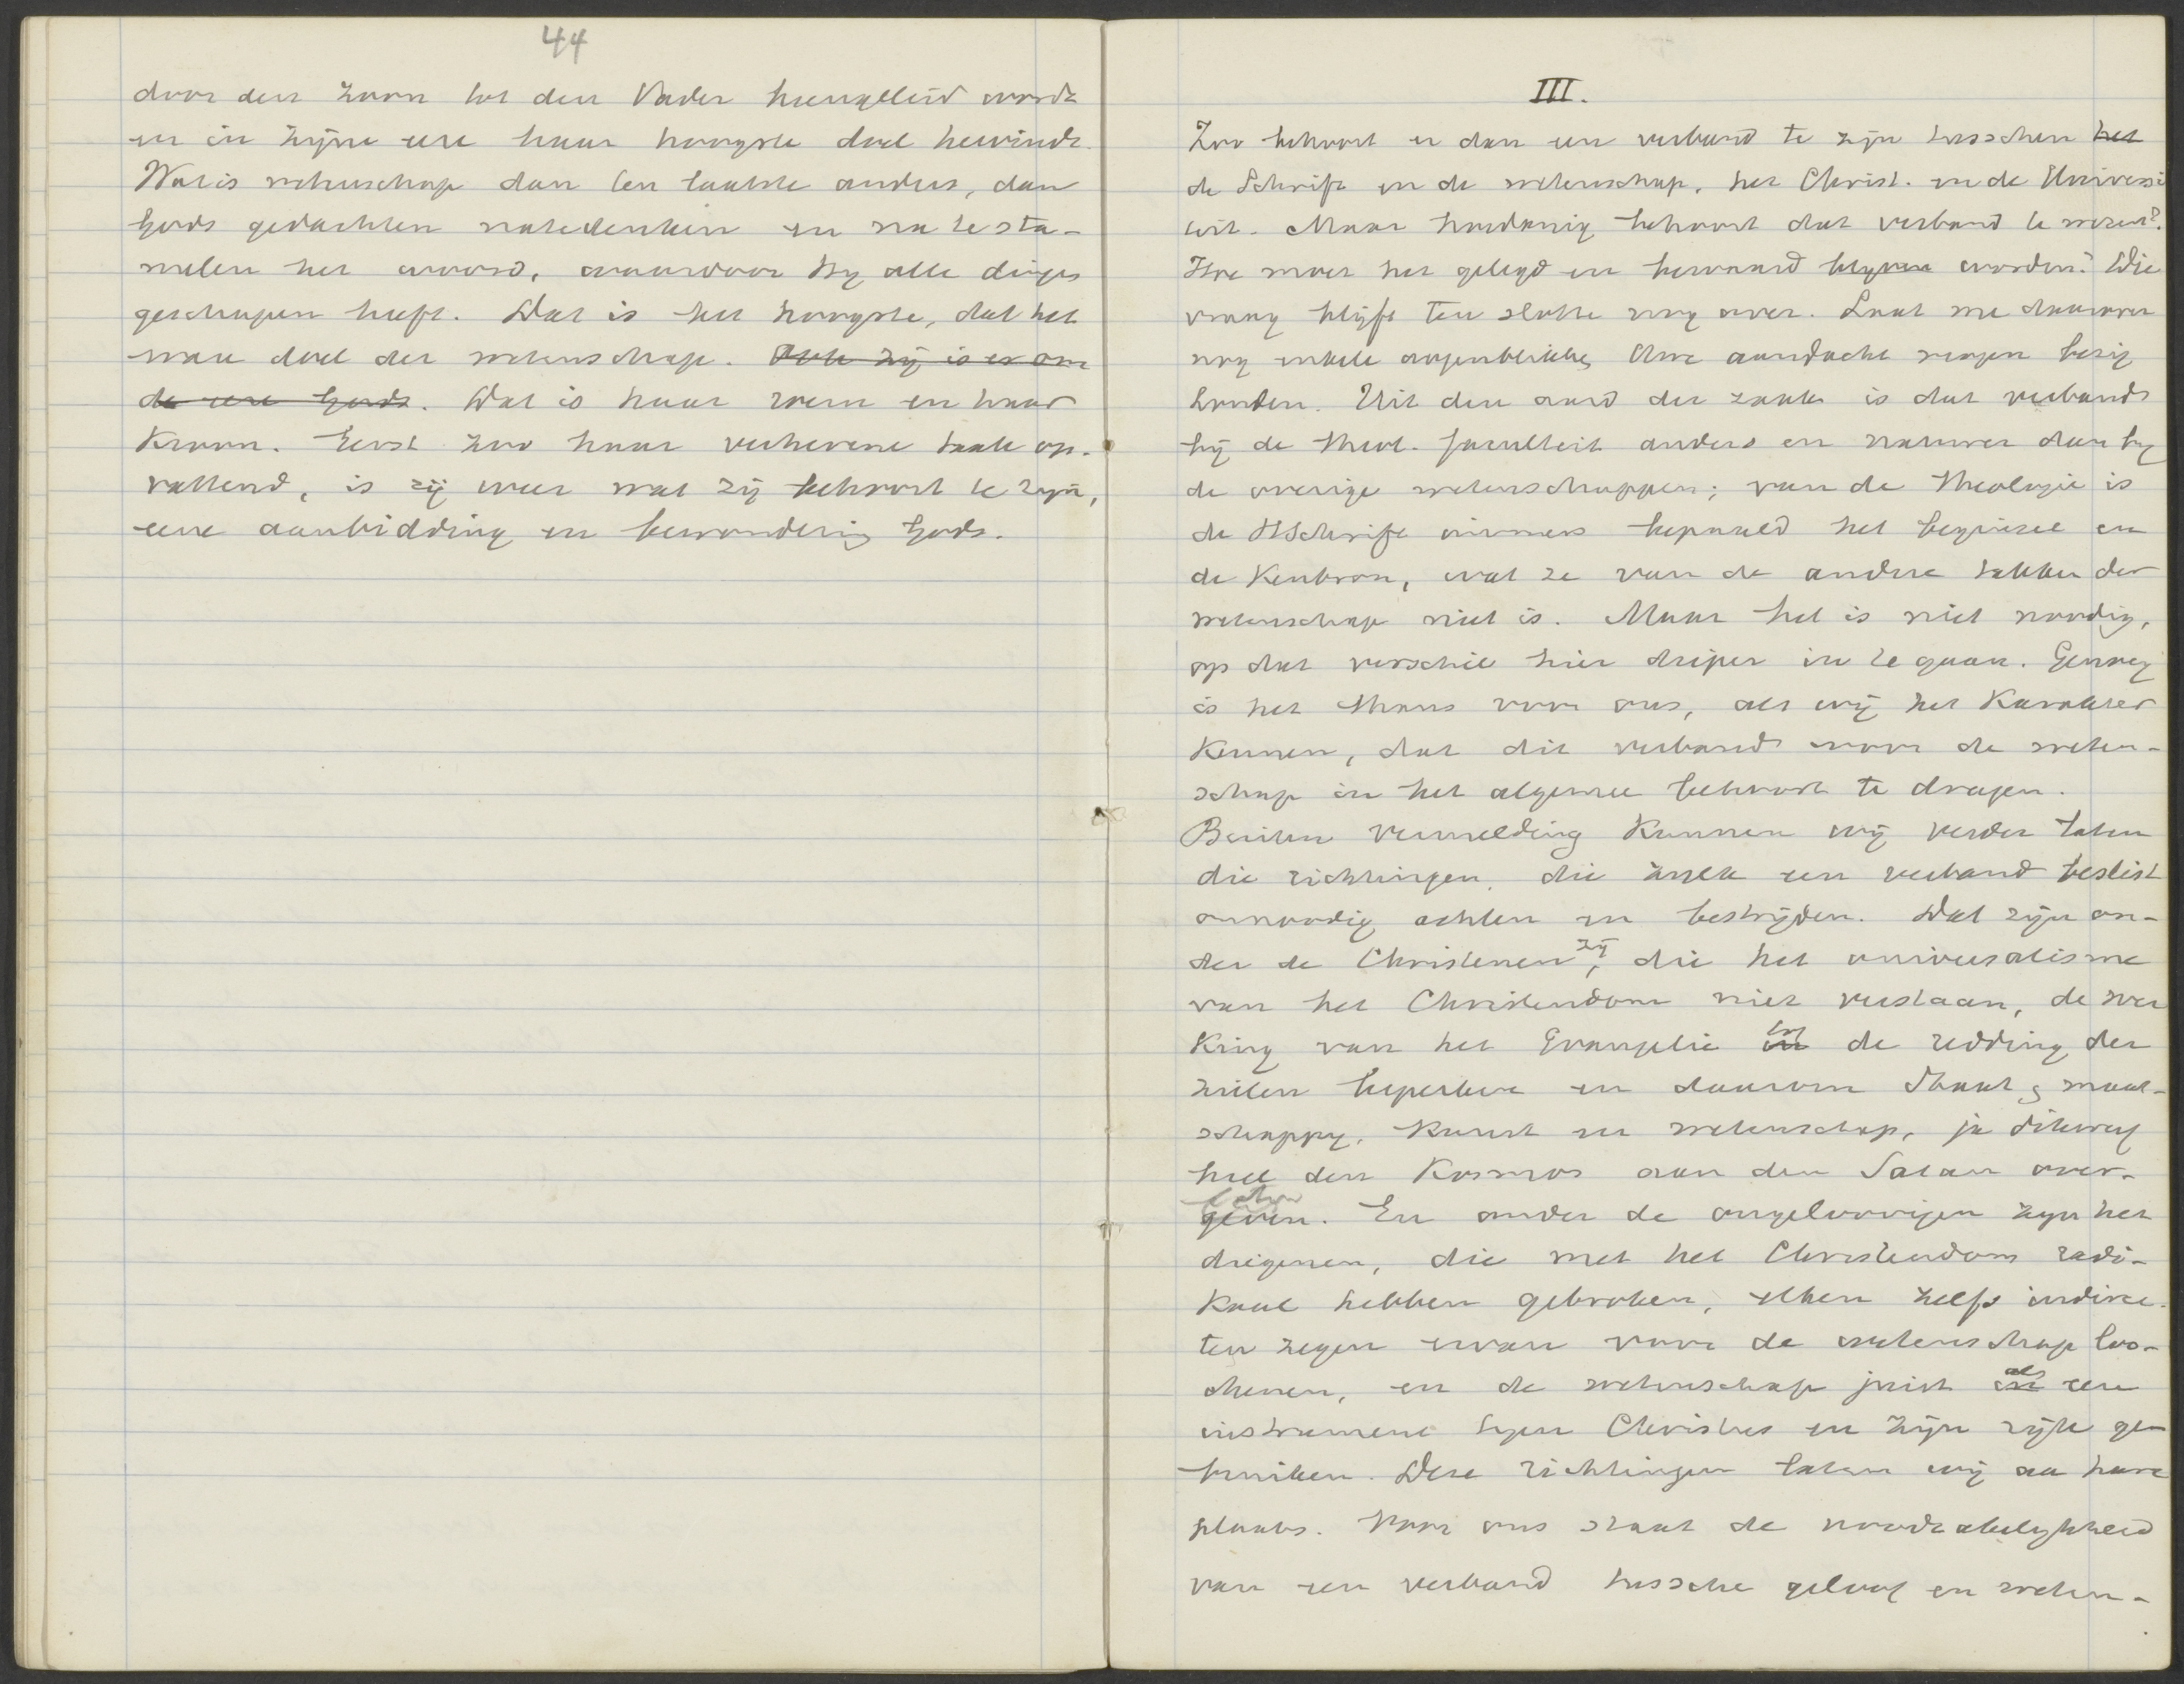 44
door den Zoon tot den Vader heengeleid wordt
en in zijne eere haar hoogste doel bevindt.
Wat is wetenschap dan ten laatste anders, dan
Gods gedachten nate denken en na te sta-
melen het woord, waardoor Hy alle dinge
geschapen heeft. Dat is het hoogste, dat het
ware doel der wetenschap. Ook zij is er om
de eere Gods. Dat is haar roem en haar
Kroon. Eerst zoo haar verhevene taak op-
vattend, is zij weer wat zij behoort te zyn,
eene aanbidding en bewondering Gods.
III.
Zoo behoort er dan een verband te zijn tusschen het
de Schrift en de wetenschap, het Christ. en de Universi
teit. Maar hoedanig behoort dat verband te wezen?
Hoe moet het gelegd en bewaard blyven worden? Die
vraag blijft ten slotte nog over. Laat me daarover
nog enkele oogenblikke Uwe aandacht mogen bezig
houden. Uit den aard der zaak is dat verband
bij de theol. faculteit anders en nauwer dan by
de overige wetenschappen; van de theologie is
de HSchrift immers bepaald het beginsel en
de Kenbron, wat ze van de andere takken der
wetenschap niet is. Maar het is niet noodig,
op dat verschil hier dieper in te gaan. Genoeg
is het thans voor ons, als wij het Karakter
Kennen, dat dit verband voor de weten-
schap in het algemee behoort te dragen.
Buiten vermelding Kunnen wij verder laten
die richtingen, die zulk een verband beslist
onnoodig achten en bestrijden. Dat zijn on-
der de Christenen zij, die het universalisme
van het Christendom niet verstaan, de wer
King van het Evangelie in tot de redding der
zielen beperken en daarom Staat & maat-
schappy, Kunst en wetenschap, ja dikwerf
heel den Kosmos aan den Satan over-
geven laten. En onder de ongeloovigen zyn het
diegenen, die met het Christendom radi-
Kaal hebben gebroken, elken zelfs indirec-
ten zegen ervan voor de wetenschap loo-
chenen, en de wetenschap juist in als een
instrument tegen Christus en zijn rijk ge-
bruiken. Deze richtingen laten wij aa hare
plaats. Voor ons staat de noodzakelykheid
van een verband tussche geloof en weten-